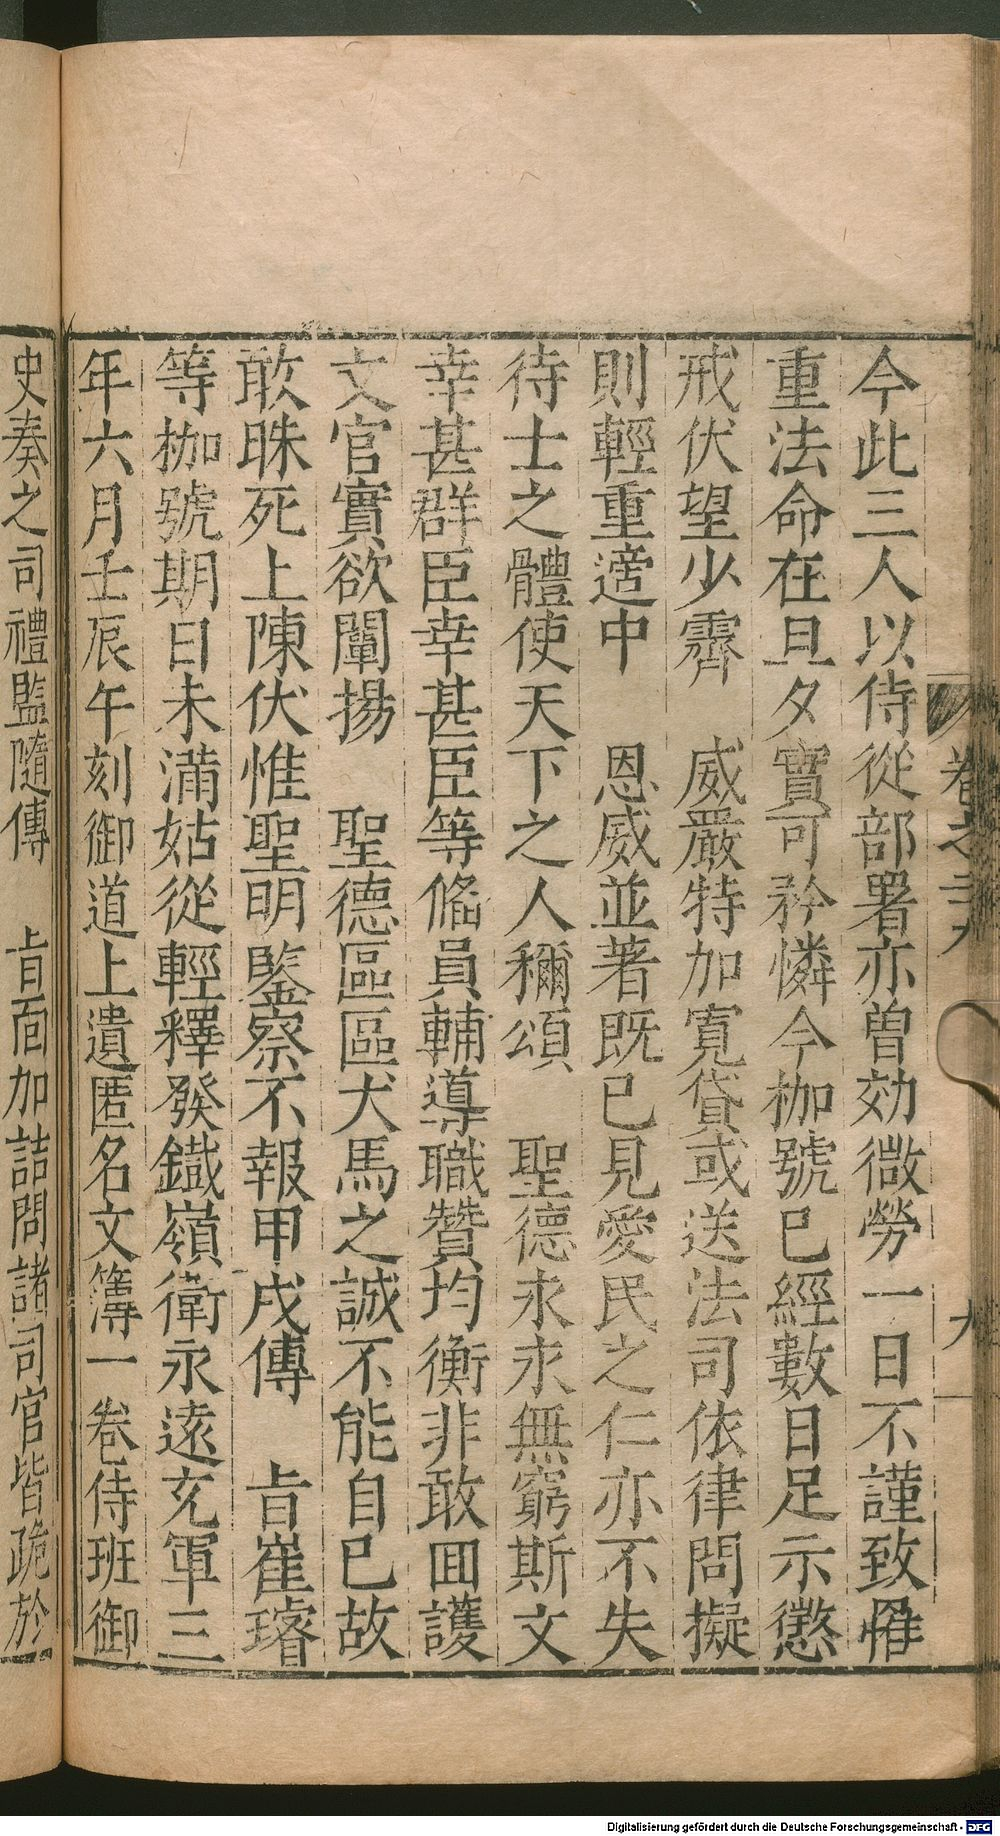 今此三人以侍從部署亦曽効微勞一日不謹致罹
重法命在旦夕實可矜憐今枷號巳經數日足示懲
戒伏望少霽　威嚴特加寬貸或送法司依律問擬
則輕重適中　恩威並著既已見愛民之仁亦不失
待士之體使天下之人稱頌　聖德永永無窮斯文
幸甚群臣幸甚臣等偹員輔導職贊均衡非敢囬護
文官實欲闡揚　聖德區區犬馬之誠不能自已故
敢昧死上陳伏惟聖明鑒察不報甲戌傳　旨崔璿
等枷號期日未滿姑從輕釋發鐵嶺衛永遠充軍三
年六月壬辰午刻御道上遺匿名文簿一卷侍班御
史奏之司禮監隨傳　旨面加詰問諸司官皆跪於
卷之二
九
Digitalisierung gefördert durch die Deutsche Forschungsgemeinschaft - DFG